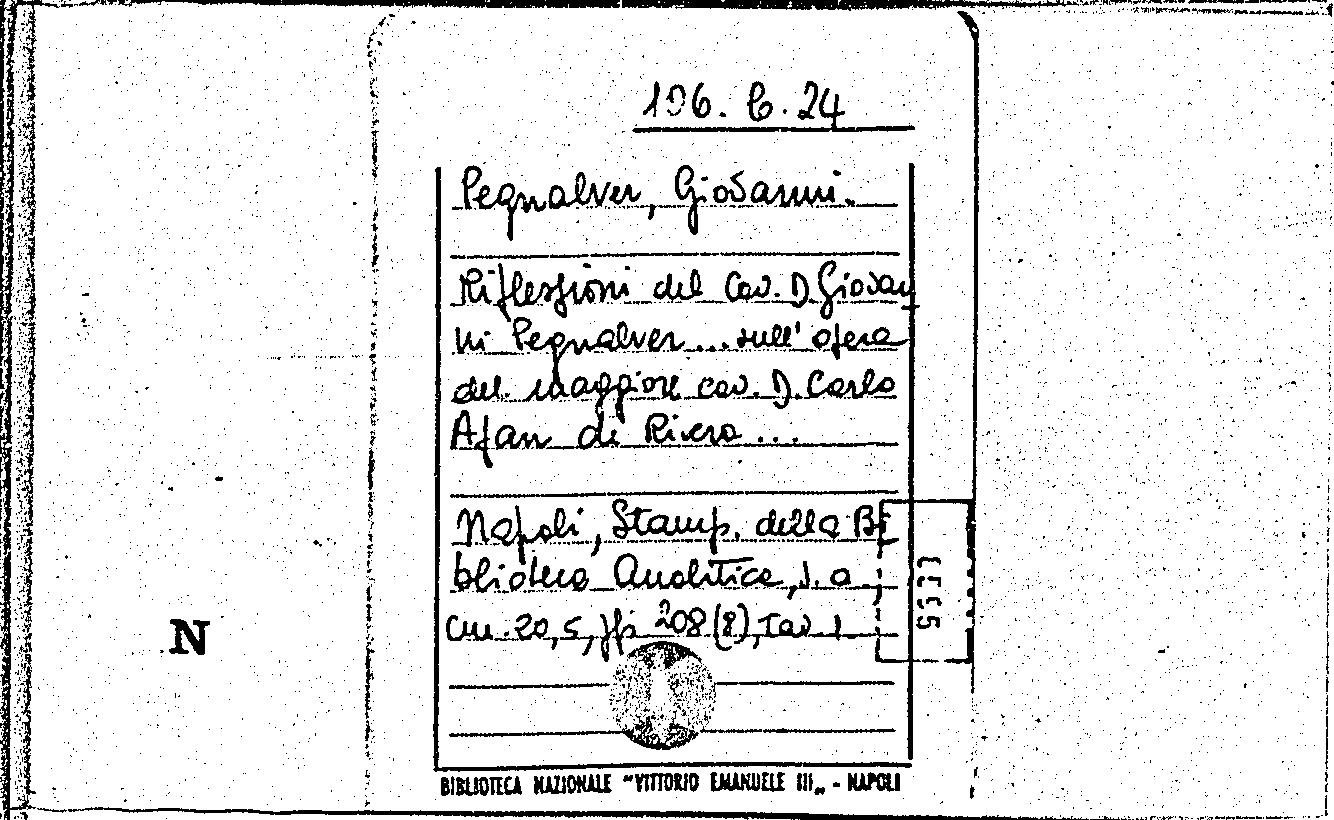 106. B. 24
Pegnalver, Giovanni.
Riflessioni del Cav. D. Giovan
ni Pegnalver ... sull' opera
del maggiore cav. D. Carlo
Afan de Rivera ...
Napoli, Stamp. della Bi
blioteca Analitica, s. a.,
cm. 20,5, pp. 208 (8), Tav. 1
N
BIBLIOTECA NAZIONALE "VITTORIO EMANUELE III„ - NAPOLI